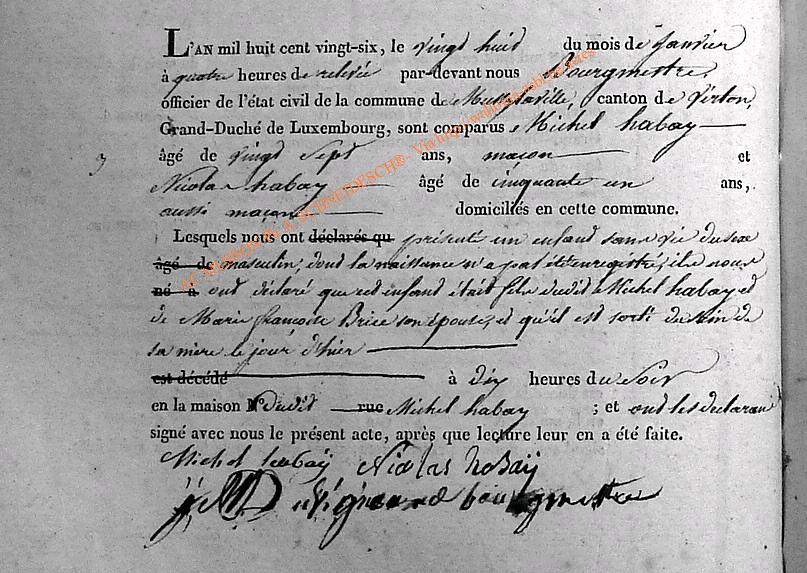 L'AN mil huit cent vingt-six, le vingt huit du mois de Janvier
à quatre heures de relevée par-devant nous Bourgmestre,
officier de l'état civil de la commune de canton de Virton,
Grand-Duché de Luxembourg, sont comparus Michel habay
3 âgé de vingt Sept ans, maçon et
Nicolas habay âgé de cinquante un ans,
aussi maçon domiciliés en cette commune.
Lesquels nous ont déclarés qu présenté un enfant sans vie du sexe
âgé de masculin, dont la naissance n'a pas été enregistré, et nous
né à ont déclaré que cet enfant était fils dudit Michel habay et
de Marie françoise Brice son épouse, et qu'il est sorti du sein de
sa mere le jour d'hier
est décédé à dix heures du Soir
en la maison N° dudit rue Michel habay ; et ont les declarans
signé avec nous le présent acte, après que lecture leur en a été faite.
Michel habaÿ Nicolas
bourgmestre